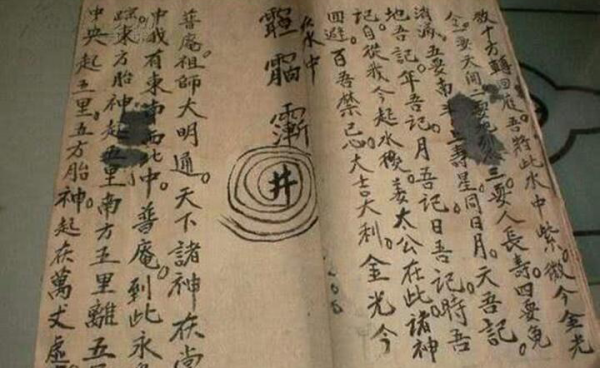 敕十方轉回座。吾將此水中紫微今金光
三要人長壽。四要免
消滿。五要南
星。同日月。天吾記。
地吾記。年吾記。月吾記日吾記。時吾
記。自從我今起水
姜太公在此。諸神
回避。百吾禁忌。大吉大利。金光今
水中
井
普庵祖師大明通。天下諸神在當
中。我有東南西北中。普庵到此永
踪。東方胎神起五里南方五里離五
中央起五里。五方胎神。起在萬丈虛